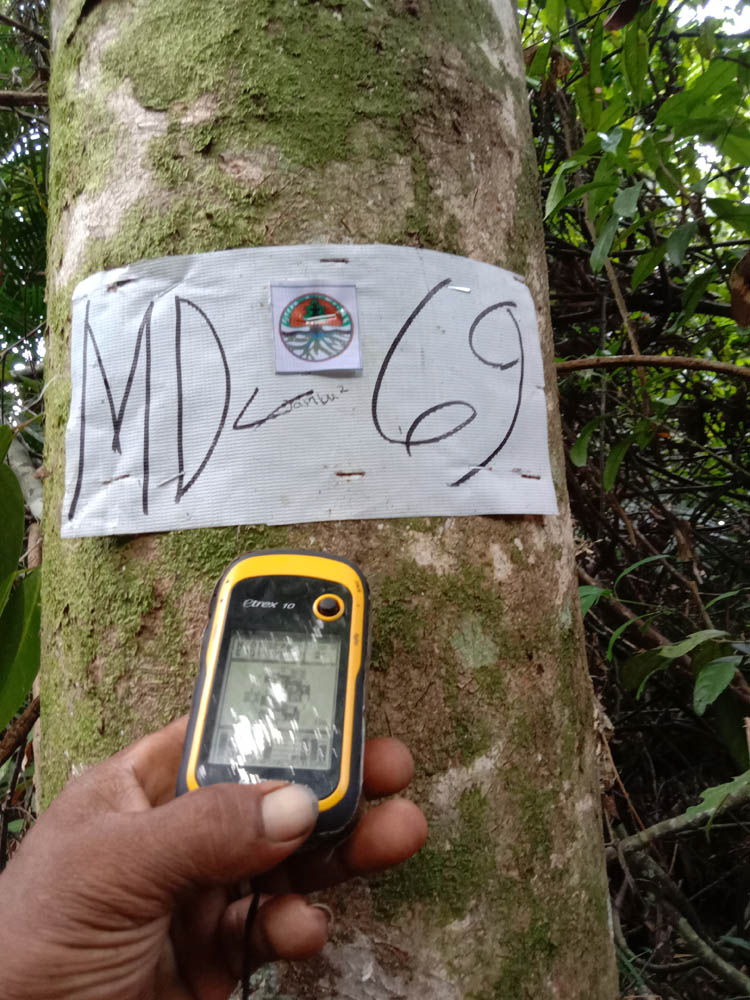 MD-69
Jambu²
etrex 10